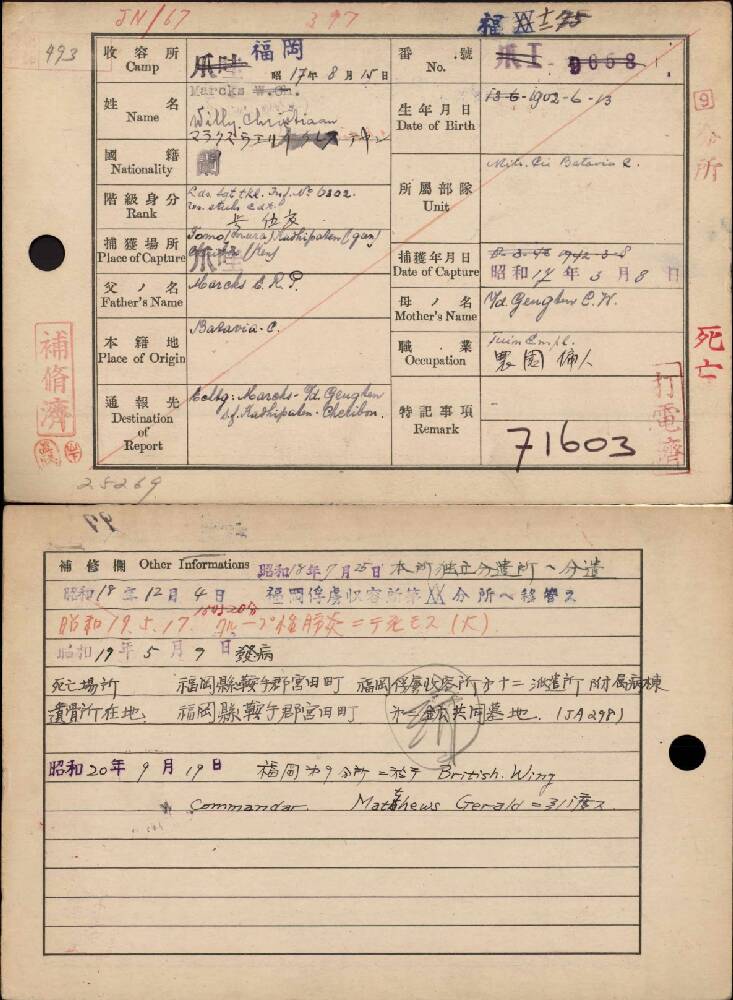 JN/67
397
福 XX 十二 75
493
收容所 Camp
爪陸 福岡
昭17年8月15日
番號 No.
爪工 - 9668
姓名 Name
Marcks W.Ch.
Willy Christiaan
國籍 Nationality
蘭
生年月日 Date of Birth
13-6-1902-6-13
階級身分 Rank
所屬部隊 Unit
Batavia C.
9 分所
捕獲場所 Place of Capture
爪陸
捕獲年月日 Date of Capture
8-3-42 1942-3-8
昭和17年3月8日
父ノ名 Father's Name
Marcks C.R.P.
母ノ名 Mother's Name
v/d Geugten C.W.
本籍地 Place of Origin
Batavia-C.
職業 Occupation
Tuin Empl.
農園傭人
死亡
通報先 Destination of Report
Echtg: Marcks-v/d Geugten
s.f. Kadhipaten-Cheribon.
特記事項 Remark
-
71603
補脩濟
打電濟
25269
補修欄 Other Informations
昭和18年7月25日 本所独立分遣所へ分遣
昭和18年12月4日 福岡俘虜収容所第XX分所へ移管ス
昭和19.5.17. クループ性肺炎ニテ死亡ス(火)
昭和19年5月9日 發病
死亡場所 福岡縣鞍手郡宮田町 福岡俘虜収容所第十二派遣所附属病棟
遺骨所在地、福岡縣鞍手郡宮田町 共同墓地.(JA298)
昭和20年9月19日 福岡第9分所ニ於テ British. Wing
Commandar. Matthews Gerald ニ引渡ス